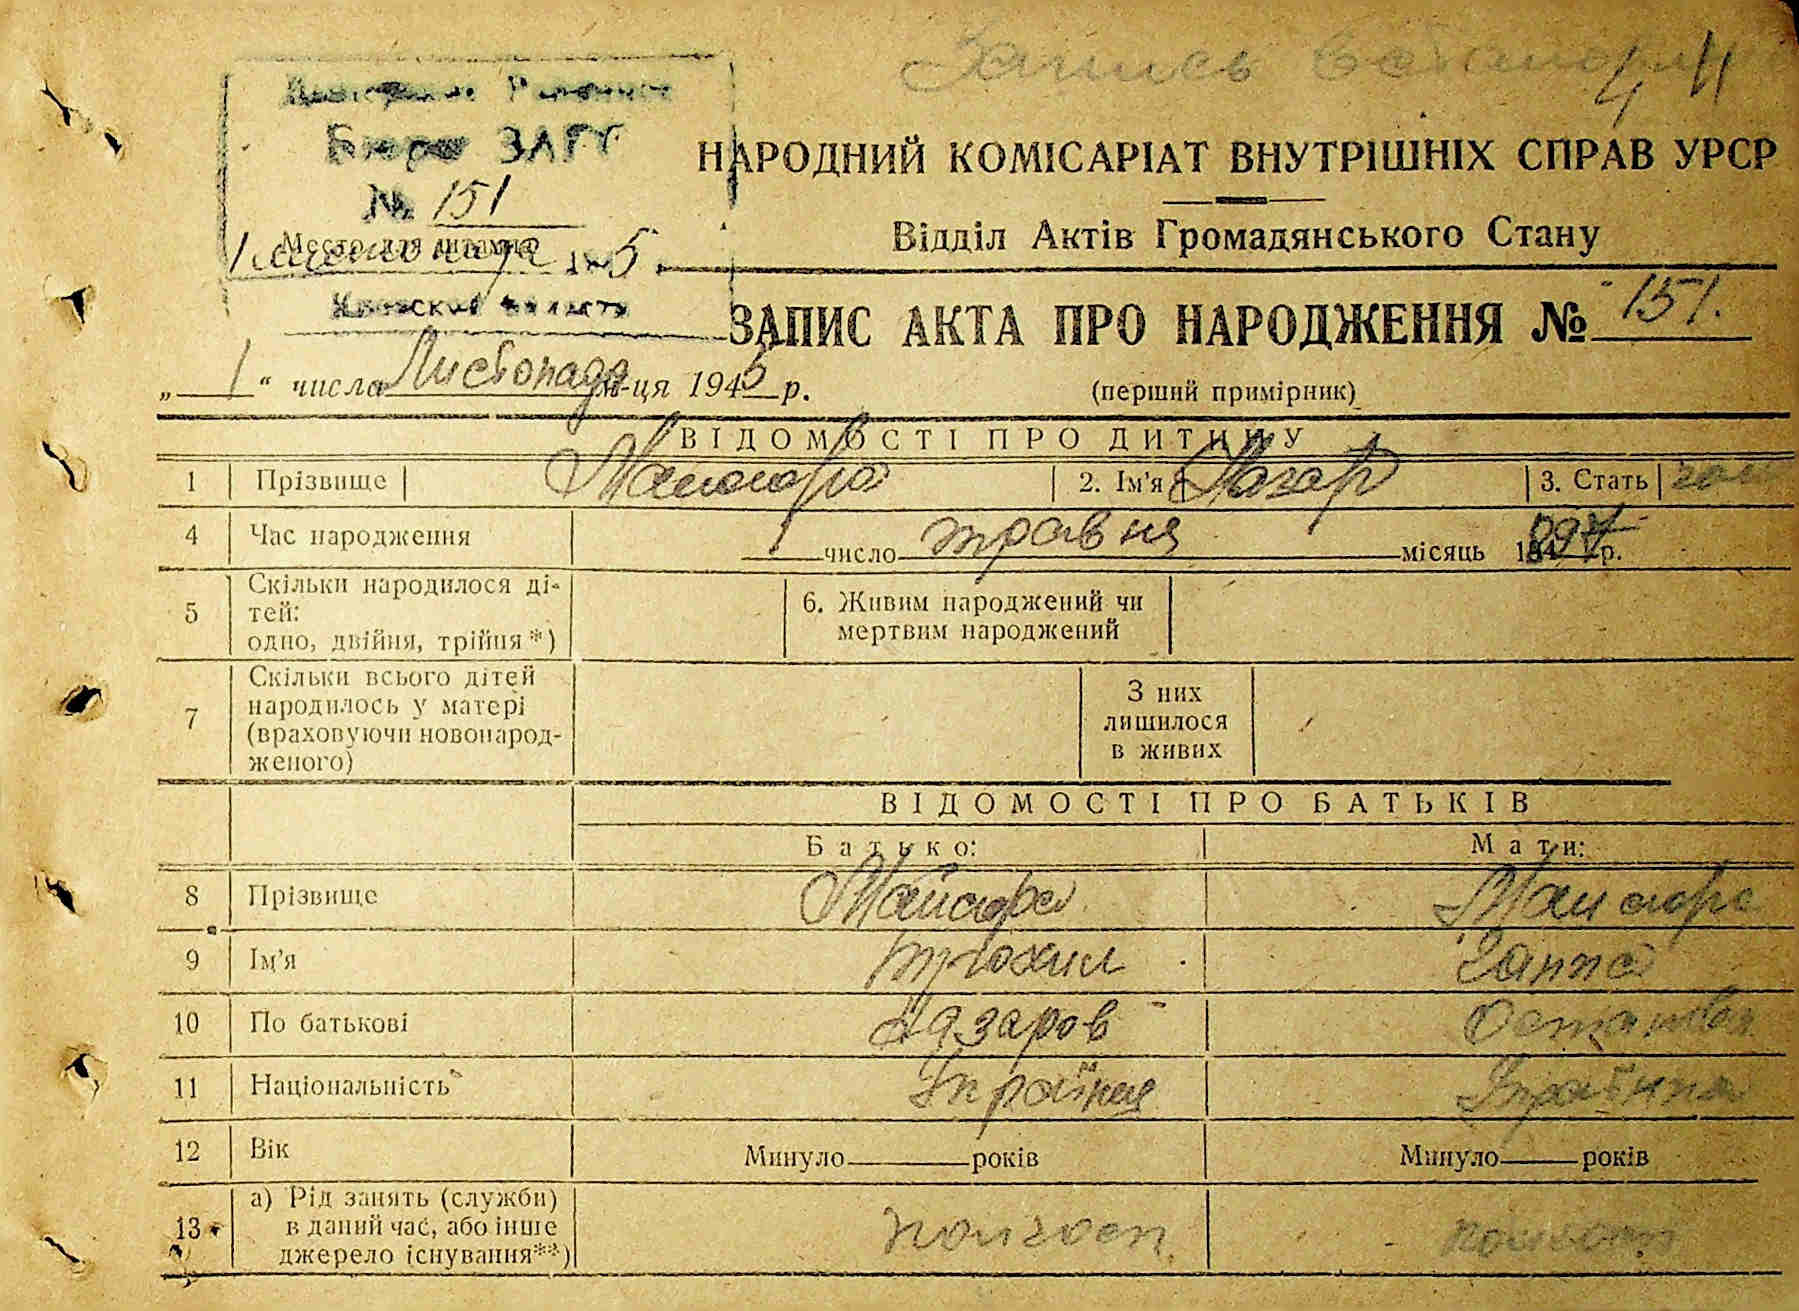 Запись
4
Бюро ЗАГС
№ 151
НАРОДНИЙ КОМІСАРІАТ ВНУТРІШНІХ СПРАВ УРСР
Место для штампа
5
Відділ Актів Громадянського Стану
ЗАПИС АКТА ПРО НАРОДЖЕННЯ № 151.
„ 1 “ числа Листопада м-ця 1945 р.
(перший примірник)
ВІДОМОСТІ ПРО ДИТИНУ
1 Прізвище Майсюра 2. Ім'я Назар 3. Стать чол
4 Час народження число травня місяць 1897 р.
5 Скільки народилося ді-
тей:
одно, двійня, трійня *)
6. Живим народжений чи
мертвим народжений
7 Скільки всього дітей
народилось у матері
(враховуючи новонарод-
женого)
З них
лишилося
в живих
ВІДОМОСТІ ПРО БАТЬКІВ
Батько: Мати:
8 Прізвище Майсюра Майсюра
9 Ім'я Трохим Ганна
10 По батькові Назаров
11 Національність Українец Українка
12 Вік Минуло років Минуло років
13 а) Рід занять (служби)
в даний час, або інше
джерело існування**)
колгосп колгосп